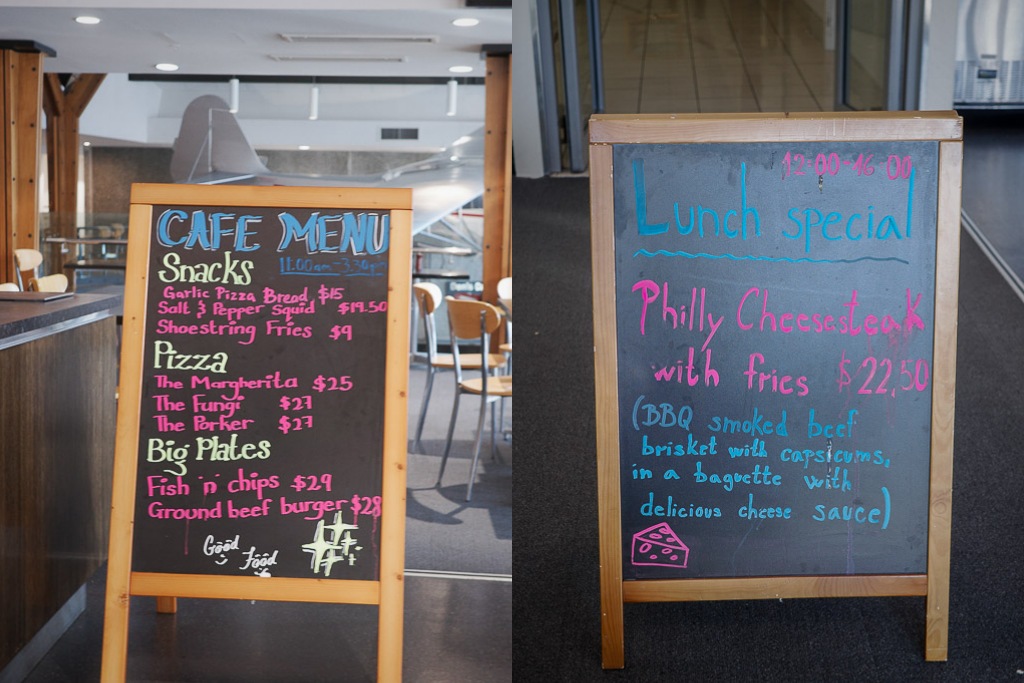 CAFE MENU
11.00am-3.30pm
Snacks
Garlic Pizza Bread $15
Salt & Pepper Squid $19.50
Shoestring Fries $9
Pizza
The Margherita $25
The Fungi $27
The Porker $27
Big Plates
Fish 'n' chips $29
Ground beef burger $28
Good
Food
12:00-16 00
Lunch special
Philly Cheesesteak
with fries $22,50
(BBQ smoked beef
brisket with capsicums,
in a baguette with
delicious cheese sauce)